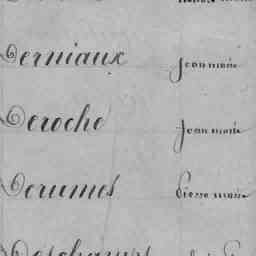 Derniaux Jean marie
Deroche Jean marie
Derumes Pierre marie
Deschamps